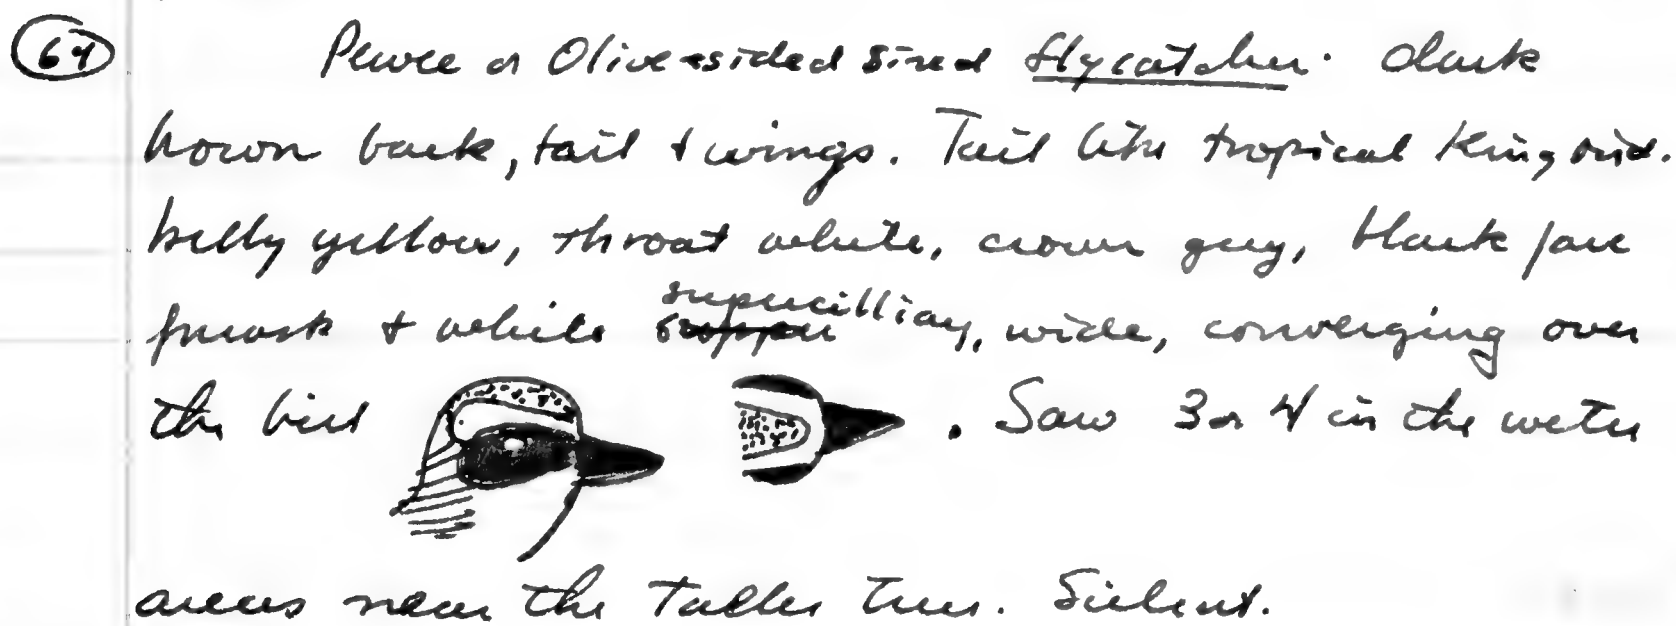 64 Pewee or Olive-sided sized flycatcher. Dark
brown back, tail & wings. Tail like tropical Kingbird.
belly yellow, throat white, crown grey, black face
mask & white supercilliary, wide, converging over
the bill . Saw 3 or 4 in the wetter
areas near the taller trees. Silent.